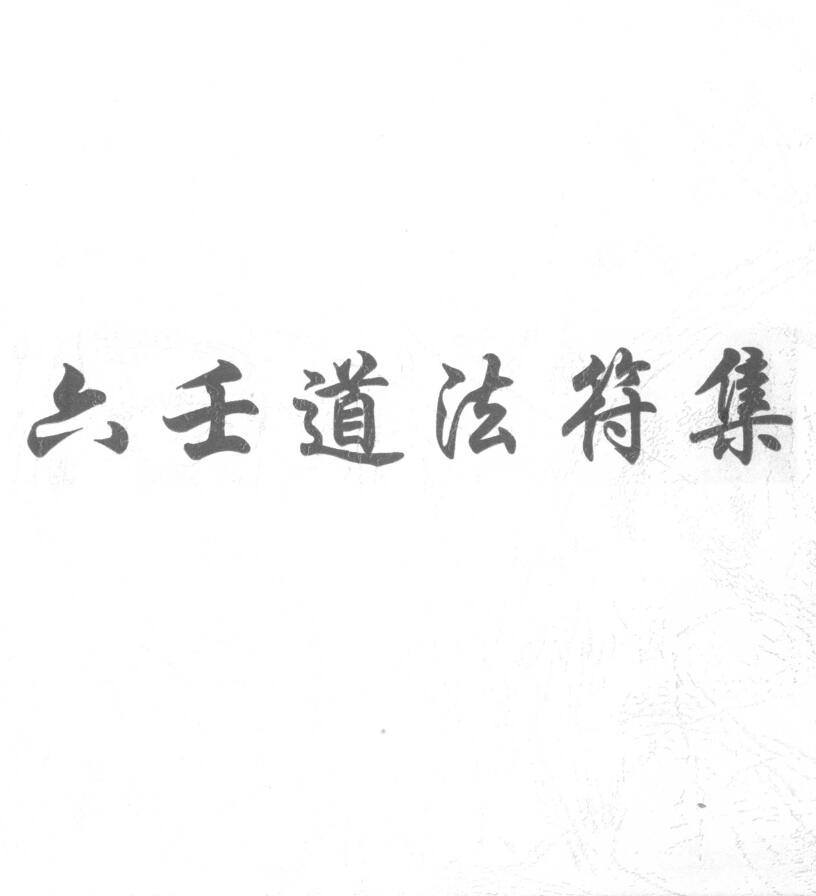 六壬道法符集